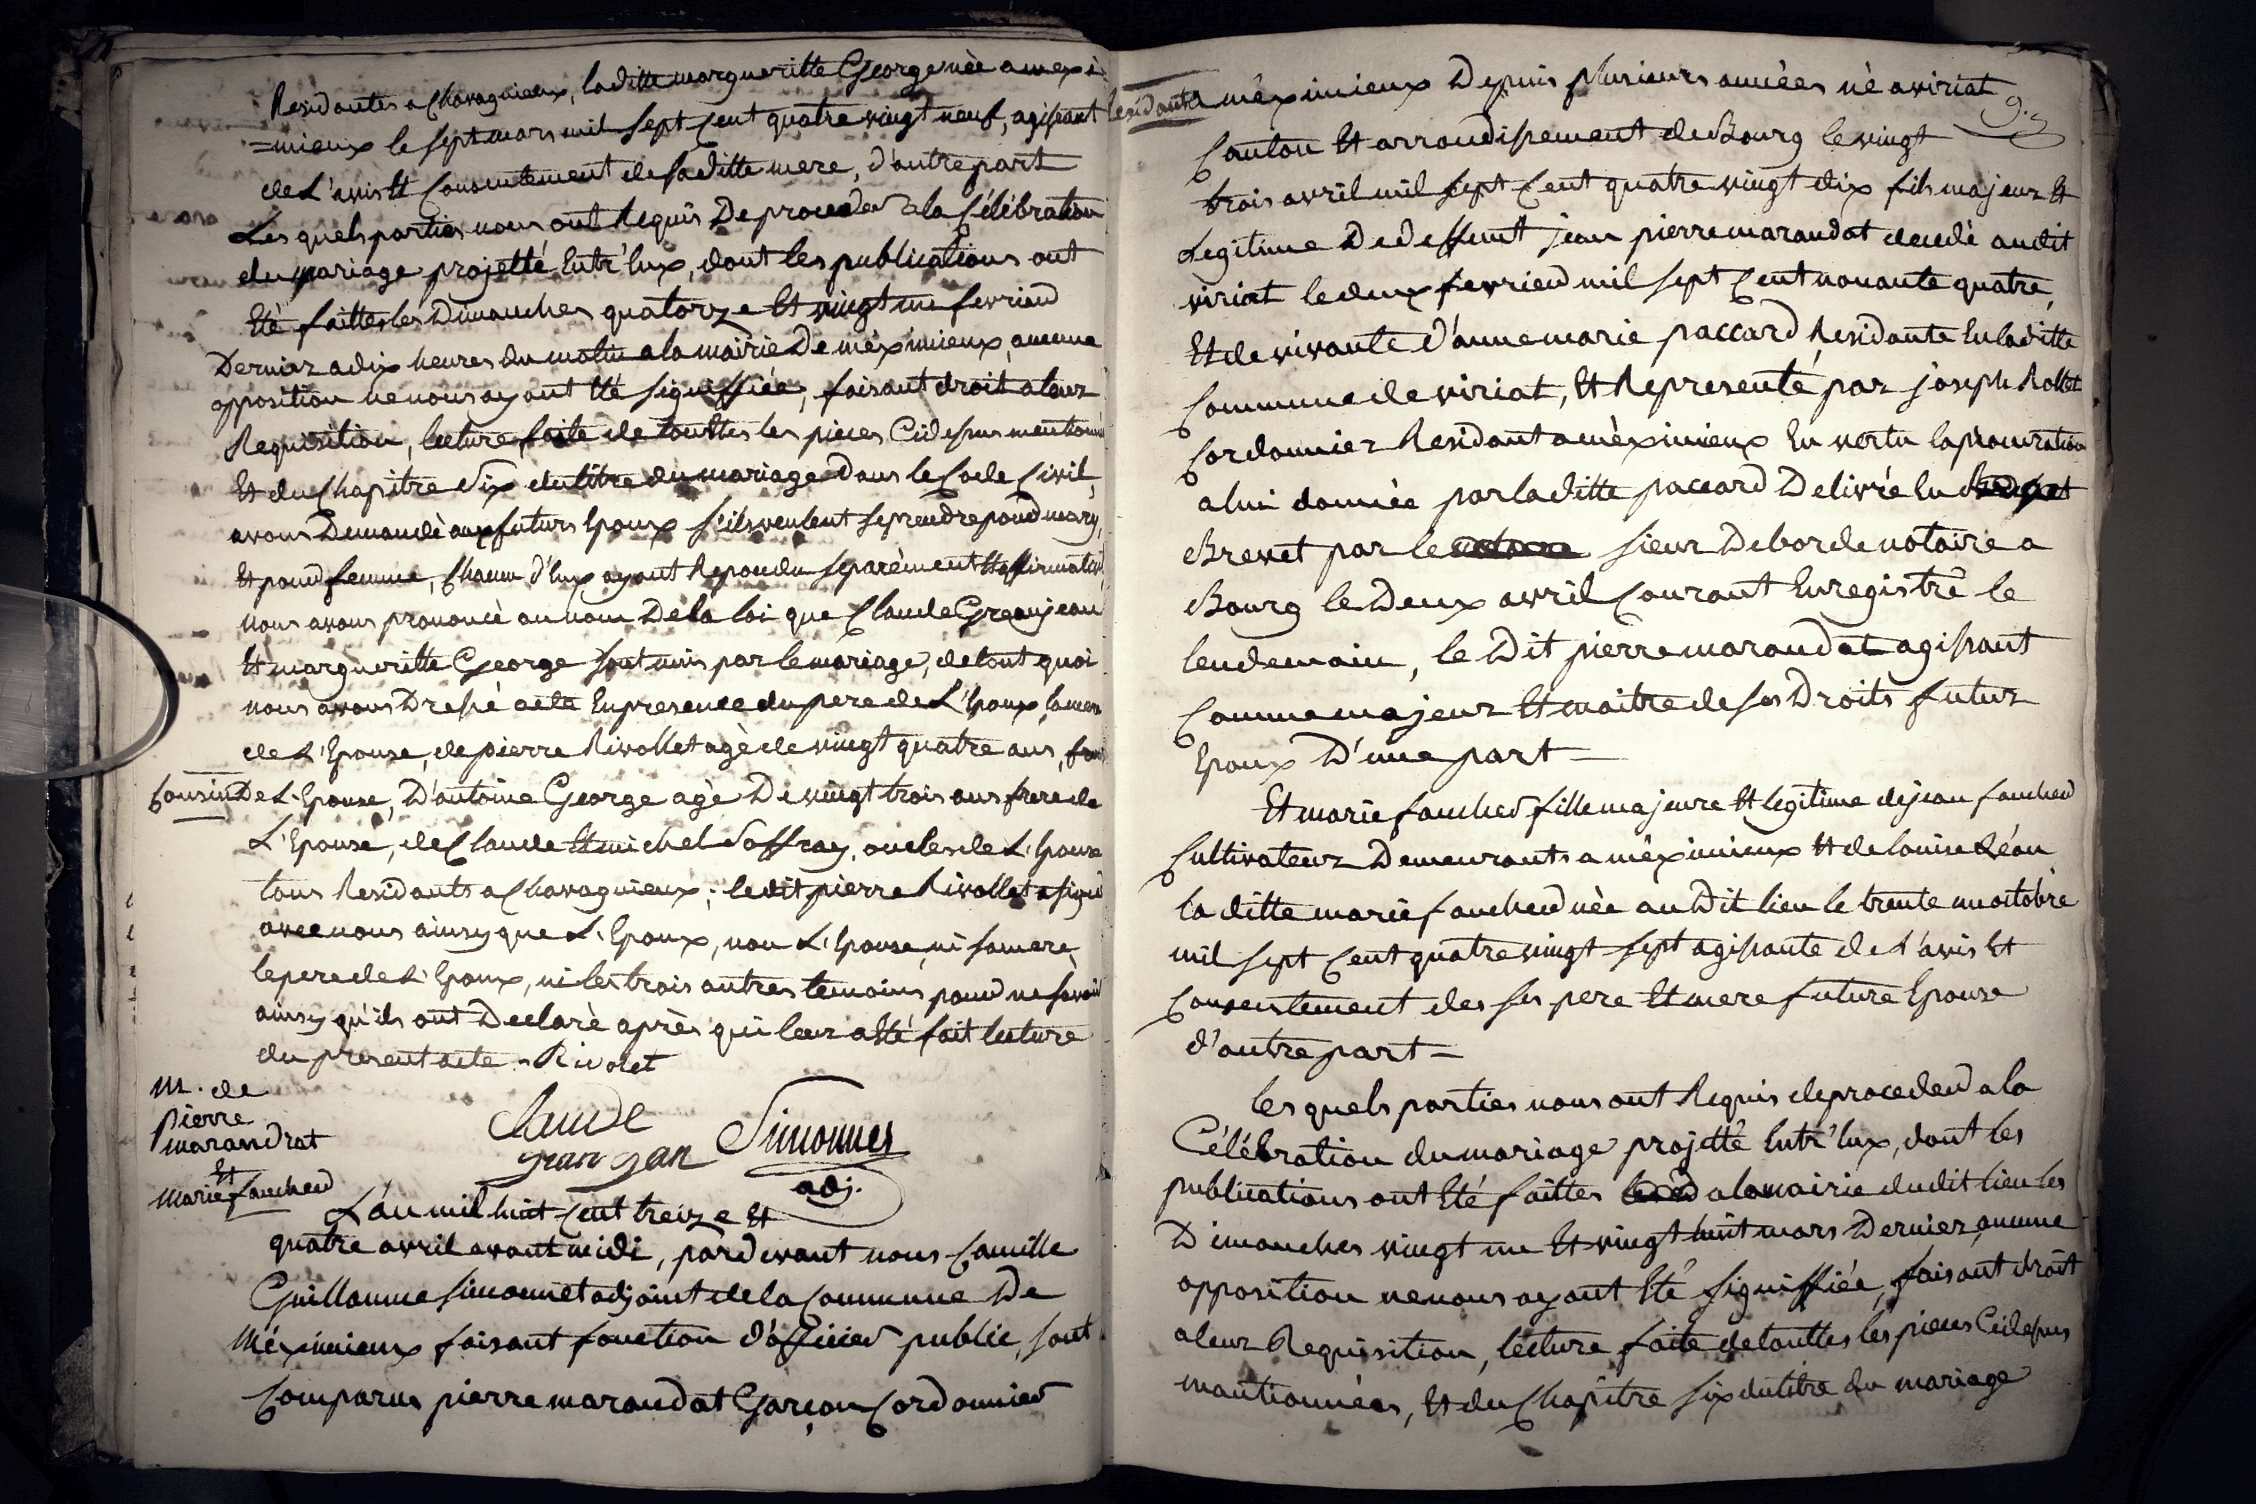 Residantes a Chavagnieux, laditte margueritte George née a mexi
=mieux le sept mars mil sept Cent quatre vingt neuf, agissant
de L'avis Et Consentement de saditte mere, d'autre part
Les quels parties nous ont Requis De proceder a la Célébration
du mariage projetté Entr'Eux, dont les publications ont
Eté faittes les Dimanches quatorze Et vingt un fevrier
Dernier a dix heures du matin a la mairie De méximieux, aucune
opposition ne nous ayant Eté signiffiée, faisant droit a leur
Requisition, lecture faite de touttes les pieces Cidessus mentionné
Et du Chapitre Six du titre du mariage Dans le Code Civil,
avons Demandè aux futurs Epoux s'ils veulent se prendre pour mary,
Et pour femme, Chacun d'Eux ayant Repondu separèment Et affirmativ
nous avons prononcè au nom De la loi que Claude Greanjean
Et margueritte George sont unis par le mariage, de tout quoi
nous avons Dressè acte En presence du pere de L'Epoux, la mere
de L'Epouse, de pierre Rivollet agè de vingt quatre ans,
Cousin De L'Epouse, D'antoine George agè De vingt trois ans frere de
L'Epouse, de Claude Et michel Soffray, oncles de L'Epouse
tous Residants a Chavagnieux; ledit pierre Rivollet a signé
avec nous ainsy que L'Epoux, non L'Epouse, ni sa mere,
le pere de L'Epoux, ni les trois autres temoins pour ne savoir
ainsy qu'ils ont Declarè après qui leur a Eté fait lecture
du present acte - Rivolet
Claude
gran gan
Simonnet
adj.
M. de
pierre
marandrat
Et
marie faucher
L'an mil huit Cent treize Et
quatre avril avant midi, pardevant nous Camille
Guillaume Simonnet adjoint de la Commune De
Méximieux faisant fonction d'officier public, sont
Comparus pierre marandat Garçon Cordonnier
9.
Residant a mèximieux Depuis plusieurs années nè a viriat
Canton Et arrondissement de Bourg le vingt
trois avril mil sept Cent quatre vingt dix fils majeur Et
Legitime De deffunt jean pierre marandat decedè audit
viriat le deux fevrier mil sept Cent nonante quatre,
Et de vivante d'anne marie paccard Residante En laditte
Commune de viriat, Et Representé par joseph Rollet
Cordonnier Residant a mèximieux En vertu la procuration
a lui donnée par laditte paccard Delivré En
Brevet par le sieur Deborde notaire a
Bourg le Deux avril Courant Enregistré le
lendemain, le Dit pierre marandat agissant
Comme majeur Et maitre de ses Droits futur
Epoux D'une part
Et marie faucher fille majeure Et legitime de jean faucher
Cultivateur Demeurants a méximieux Et de louise Réau
la ditte marie faucher née au Dit lieu le trente un octobre
mil sept Cent quatre vingt sept agissante de L'avis Et
Consentement des ses pere Et mere future Epouse
d'autre part
Les quels parties nous ont Requis de proceder a la
Célébration du mariage projetté Entr'Eux, dont les
publications ont Eté faittes a la mairie dudit lieu les
Dimanches vingt un Et vingt huit mars Dernier, aucune
opposition ne nous ayant Eté signiffiée, faisant droit
a leur Requisition, lecture faite de touttes les pieces Cidessus
mantionnées, Et du Chapitre six du titre du mariage